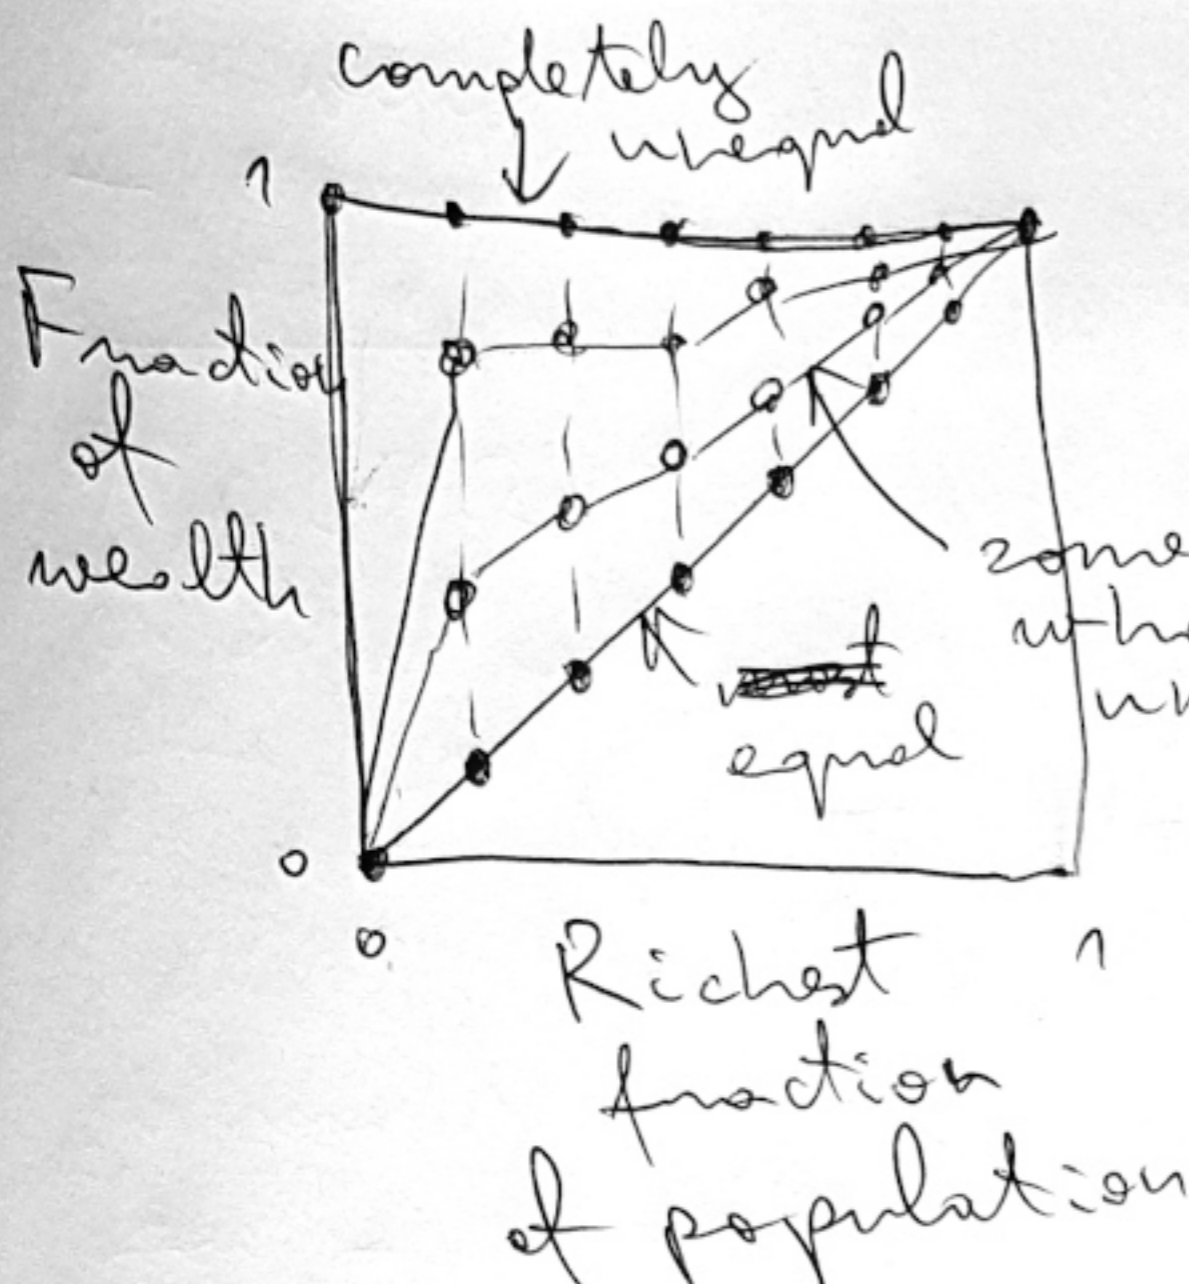 completely
unequal
1
Fraction
of
wealth
some
wh
un
equal
0
0
1
Richest
fraction
of population